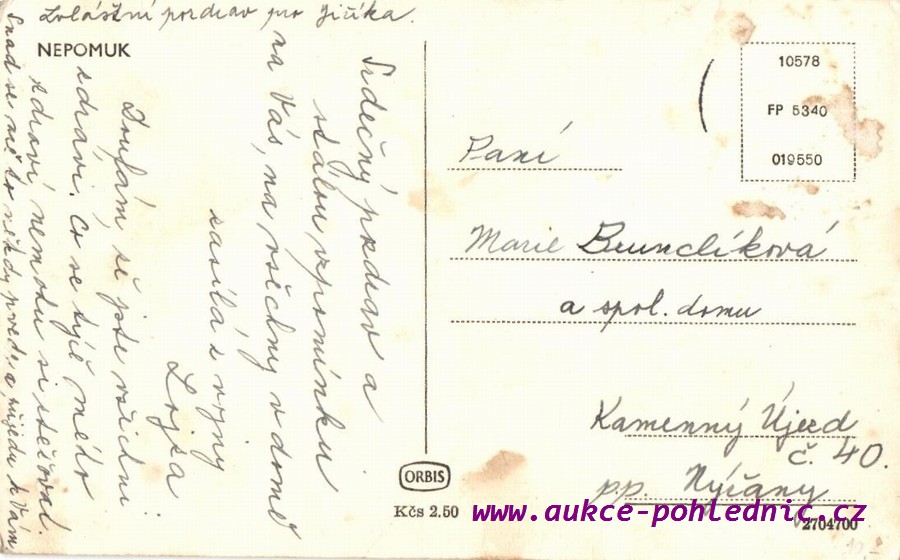 Zvláštní pozdrav pro Jiříka.
NEPOMUK
Srdečný pozdrav a
stálou vzpomínku
na Vás, na všechny v domě
zasílá z vojny
Lojza
Doufám že jste všichni
zdrávi. Co se týče mého
zdraví nemohu si stěžovat.
Snad se mě to někdy povede a přijedu k Vám
10578
FP 5340
019550
Paní
Marie Brunclíková
a spol. domu
Kamenný Újezd
č. 40.
p.p. Nýřany
ORBIS
Kčs 2.50
www.aukce-pohlednic.cz
V2704700